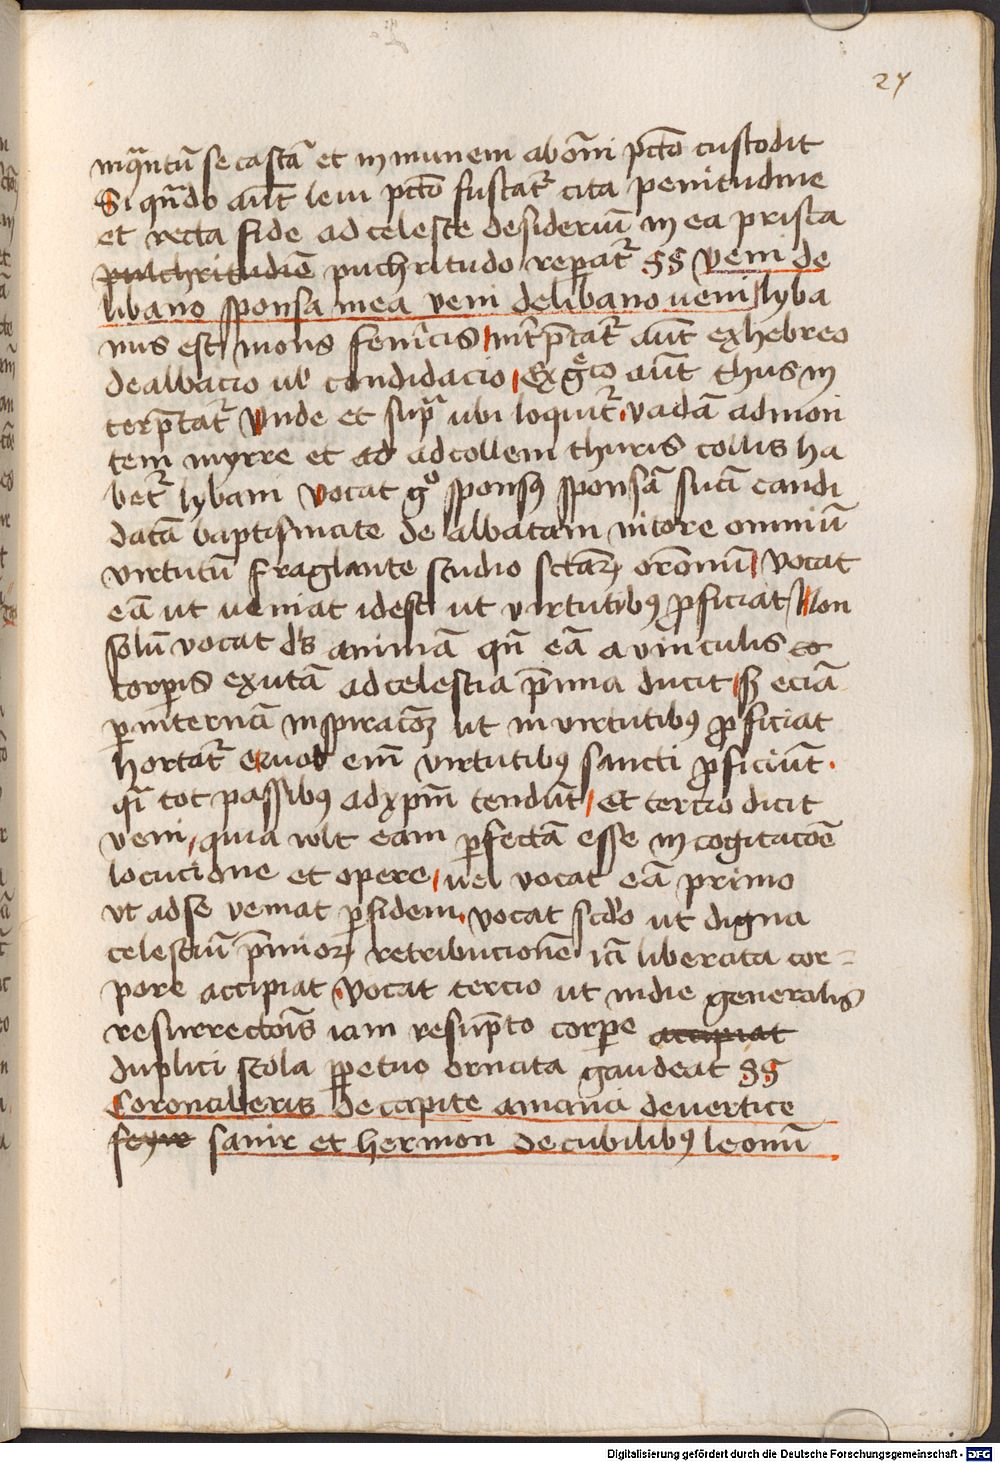 27
inqͣntū se castā et in munem ab om̄i pctō custodit
Si qn̄do aūt leui pctō fuscatr̄ cita penitudine
et recta fide ad celeste desideriū in ea prisca
pulchritudiē puchritudo reparatr̄ §§ veni de
libano sponsa mea veni de libano ueni lyba
nus est mons fenicis int̄p̄tatr̄ aūt ex hebreo
dealbacio ul̓ candidacio Ex gͤco aūt thus in
terp̄tatr̄ Vnde et supͣ ubi loquitr̄ vadā ad mon
tem myrre et ad ad collem thuris collis ha
betr̄ lybani vocat gͦ sponsꝰ sponsā suā candi
datā baptismate de albatam nitore omniū
virtutū fraglante studio sctārꝝ orōnum vocat
eā ut ueniat idest ut virtutibꝰ ꝓficiat Non
solū vocat ds̄ animā qn̄ eā a vinculis co
corꝑis exutā ad celestia p̄mia ducit sꝫ eciā
ꝑ internā inspiracōꝫ ut in virtutibꝰ ꝓficiat
hortatr̄ Quot em̄ virtutibꝰ sancti ꝓficiūt
qͥ tot passibꝰ ad xpm̄ tendūt et tercio dicit
veni quia wlt eam ꝑfectā esse in cogitacōe
locucione et opere uel vocat eā primo
vt ad se veniat ꝑ fidem vocat scd̓o ut digna
celestiū p̄miorꝝ retribucionē iā liberata cor=
pore accipiat vocat tercio ut in die generalis
resurrectōis iam resūpto corꝑe accipiat
duplici stola ꝑpetuo ornata gaudeat §§
Coronaberis de capite amana de vertice
seyre sanir et hermon de cubilibꝰ leonū
Digitalisierung gefördert durch die Deutsche Forschungsgemeinschaft - DFG